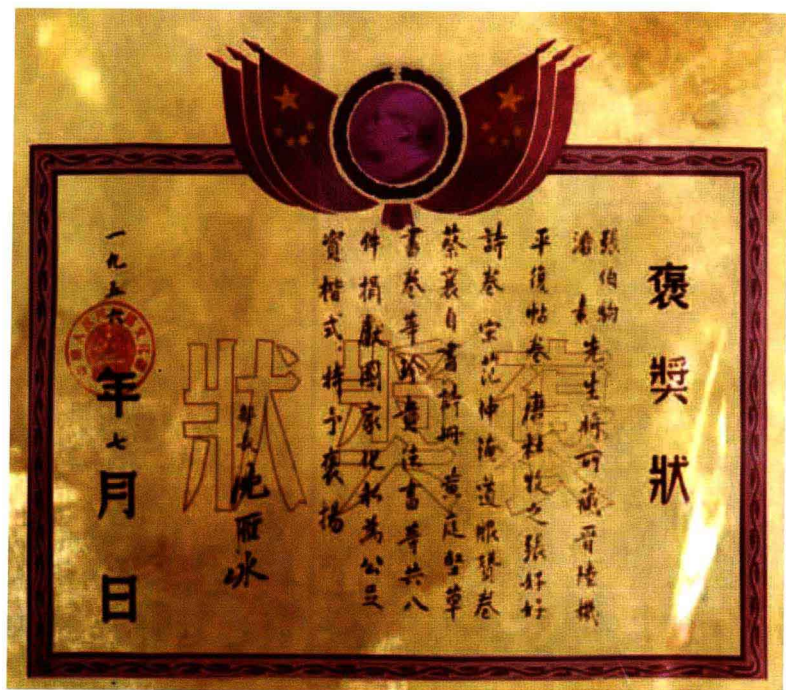 褒獎狀
張伯駒
潘素先生將所藏晉陸機
平復帖卷唐杜牧之張好好
詩卷宋范仲淹道服贊卷
蔡襄自書詩冊黃庭堅草
書卷等珍貴法書等共八
件捐獻國家化私為公足
資楷式特予褒揚
部長沈雁冰
一九五六年七月日
狀獎褒